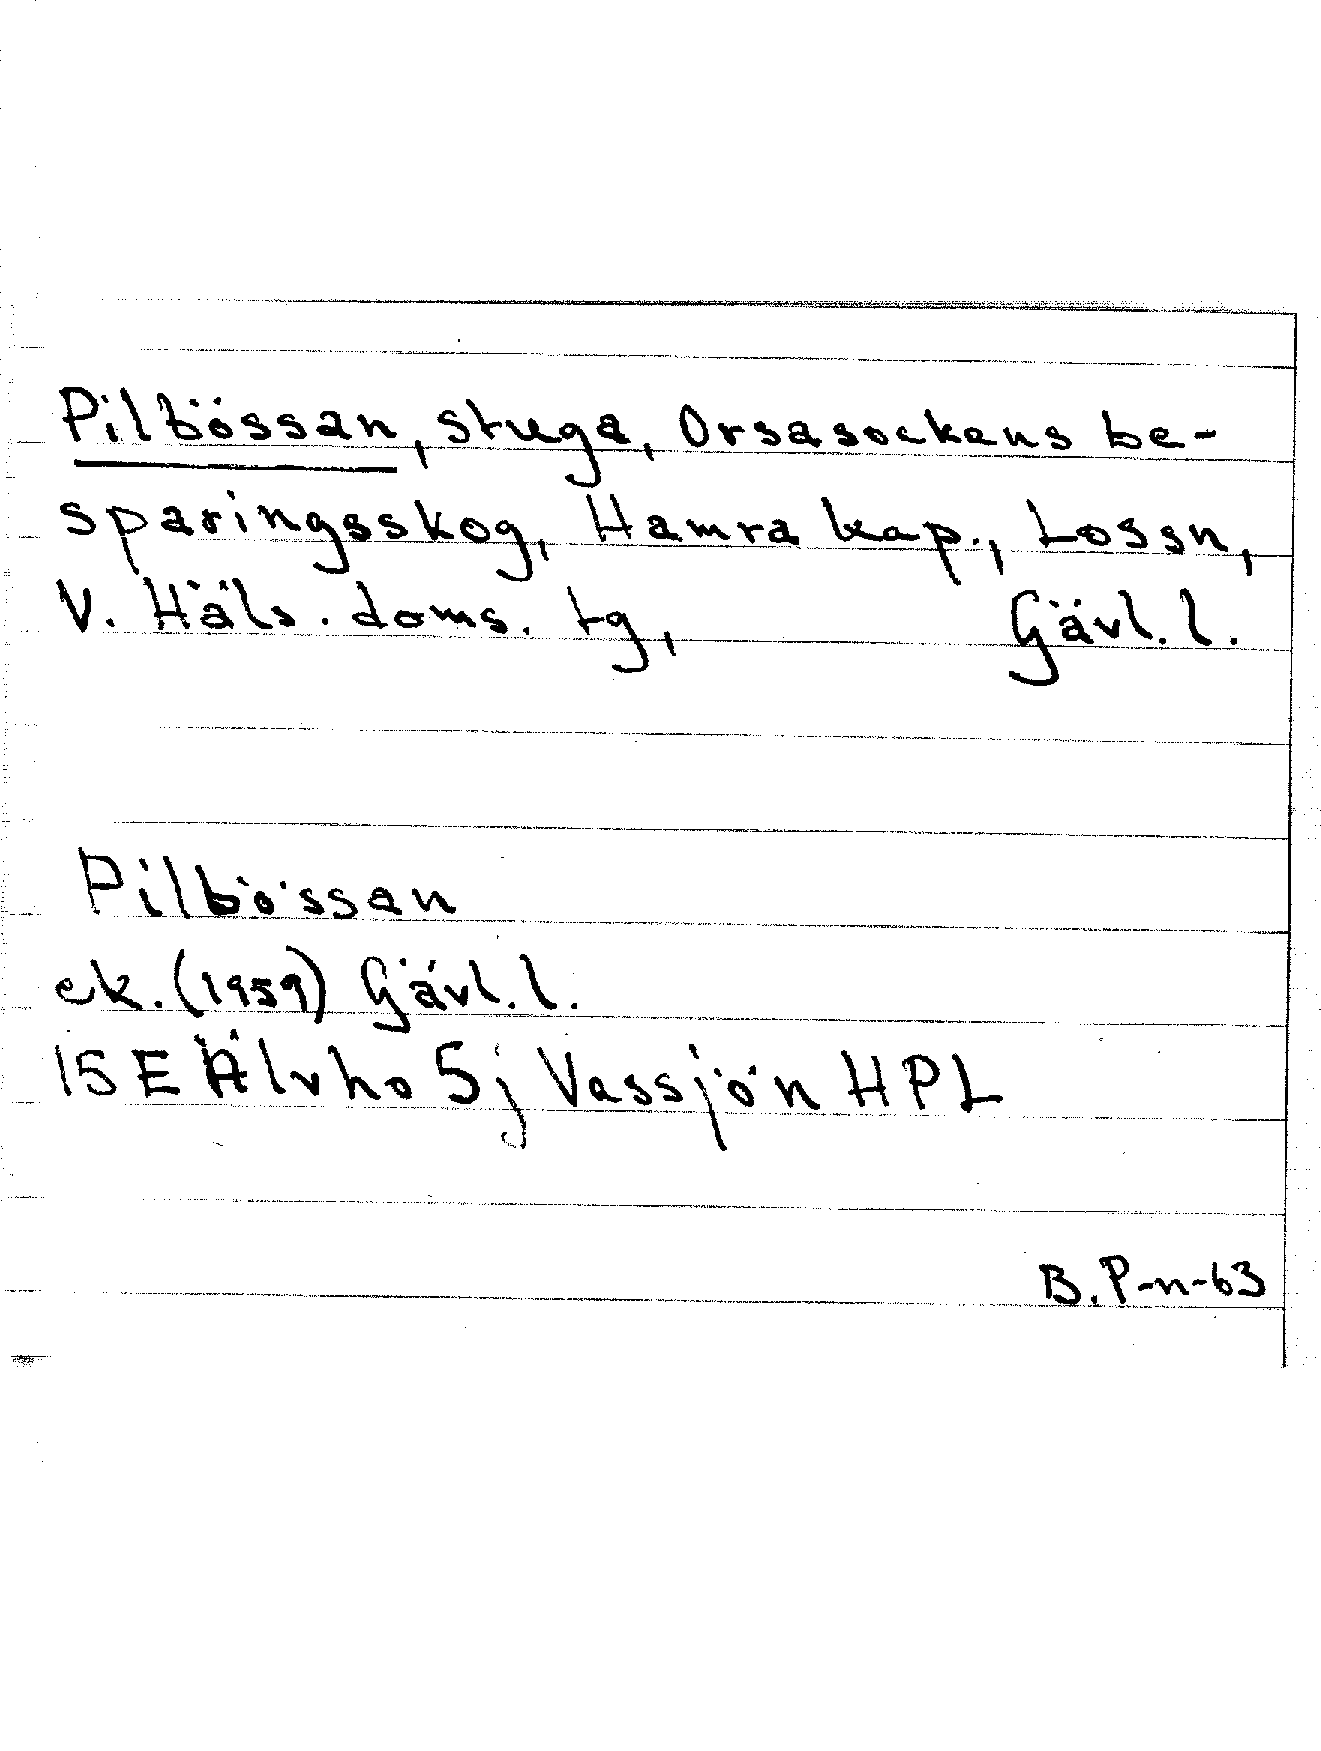 Pilbössan, stuga, Orsasockens be-
sparingsskog, Hamra kap., Lossn,
V. Häls. doms. tg, Gävl. l.
Pilbössan
ek. (1959) Gävl. l.
15 E Älvho 5j Vassjön HPL
B. P-n-63